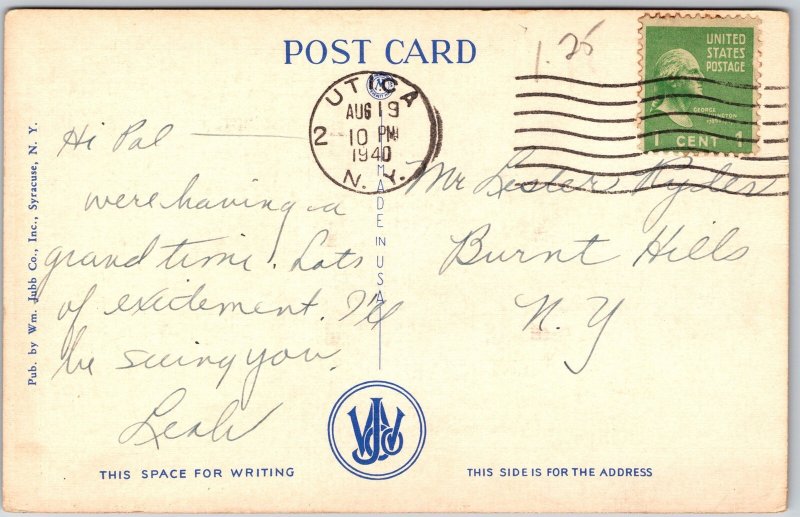 POST CARD
1.25
UNITED
STATES
POSTAGE
GEORGE
WASHINGTON
1 CENT 1
UTICA
AUG 19
2
10 PM
1940
N. Y.
Pub. by Wm. Jubb Co., Inc., Syracuse, N. Y.
MADE IN USA
Hi Pal
were having a
grand time. Lots
of excitement. I'll
be seeing you.
Leah
Mr Lester Ryder
Burnt Hills
N. Y
THIS SPACE FOR WRITING
THIS SIDE IS FOR THE ADDRESS